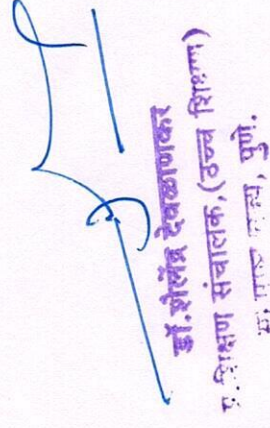 डॉ.शैलेंद्र देवळाणकर
प्र.शिक्षण संचालक,(उच्च शिक्षण)
राज्य, पुणे.